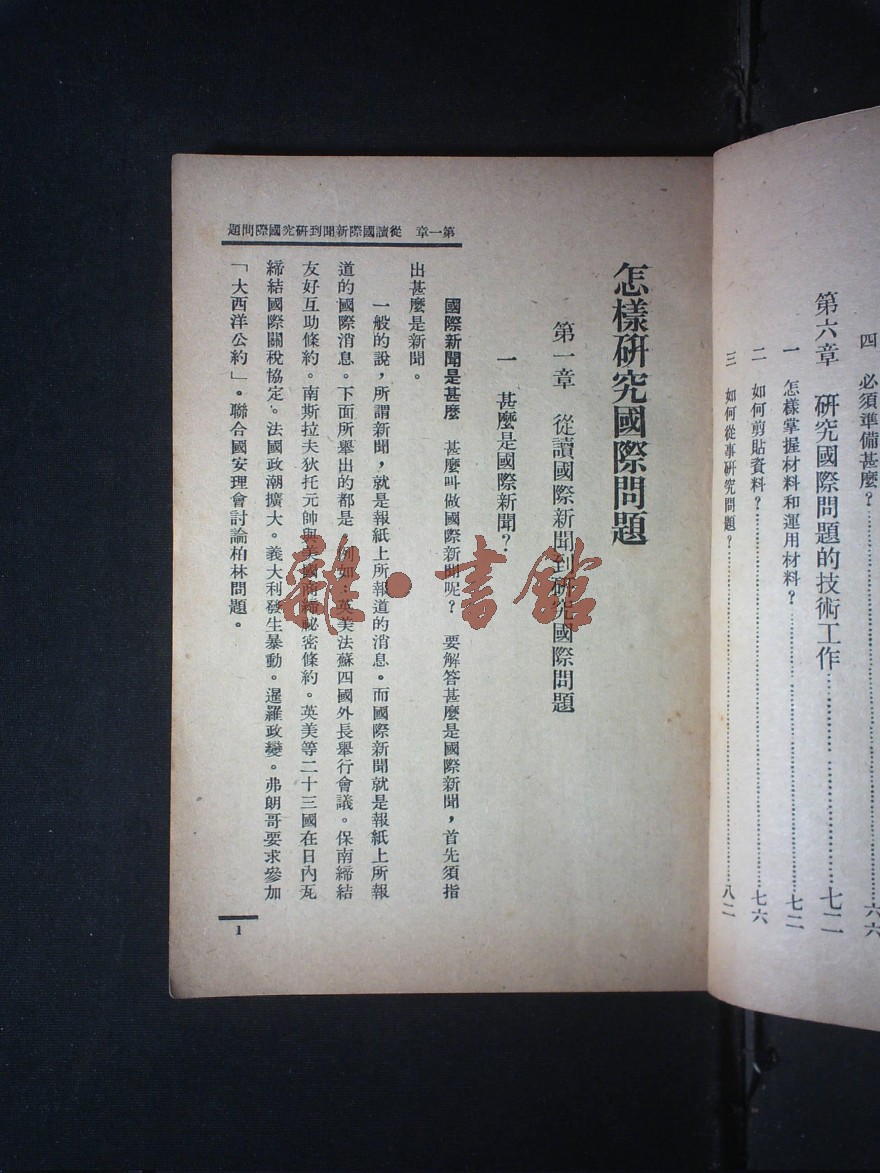 四　必須準備甚麼？……………六六
第六章　研究國際問題的技術工作……………七二
一　怎樣掌握材料和運用材料？……………七二
二　如何剪貼資料？……………七六
三　如何從事研究問題？……………八二
怎樣研究國際問題
第一章　從讀國際新聞到研究國際問題
一　甚麼是國際新聞？
國際新聞是甚麼　甚麼叫做國際新聞呢？　要解答甚麼是國際新聞，首先須指
出甚麼是新聞。
一般的說，所謂新聞，就是報紙上所報道的消息。而國際新聞就是報紙上所報
道的國際消息。下面所舉出的都是　例如：英美法蘇四國外長舉行會議。保南締結
友好互助條約。南斯拉夫狄托元帥與美國商締祕密條約。英美等二十三國在日內瓦
締結國際關稅協定。法國政潮擴大。義大利發生暴動。暹羅政變。弗朗哥要求參加
「大西洋公約」。聯合國安理會討論柏林問題。
第一章　從讀國際新聞到研究國際問題
1
雜·書館